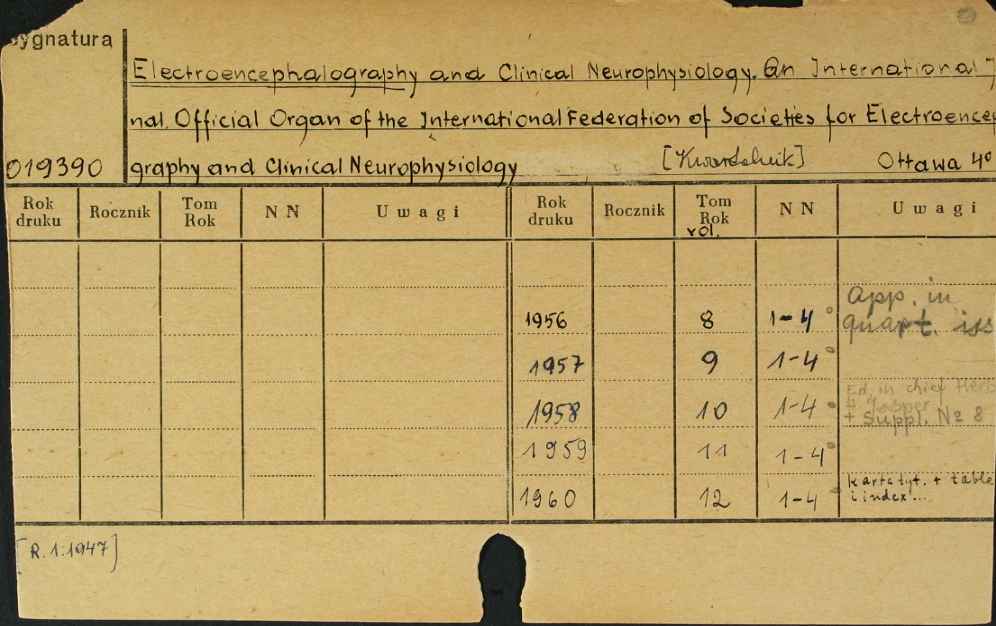 Sygnatura
Electroencephalography and Clinical Neurophysiology. An International J
nal. Official Organ of the International Federation of Societies for Electroencep
019390 graphy and Clinical Neurophysiology [Kwartalnik] Ottawa 4°
Rok druku Rocznik Tom Rok NN Uwagi Rok druku Rocznik Tom Rok NN Uwagi
vol.
App. in
1956 8 1-4° quart. iss
1957 9 1-4°
Ed. in chief Herb
Jasper
1958 10 1-4° + Suppl. № 8
1959 11 1-4°
karta tyt. + table
1960 12 1-4° i index...
[R. 1:1947]